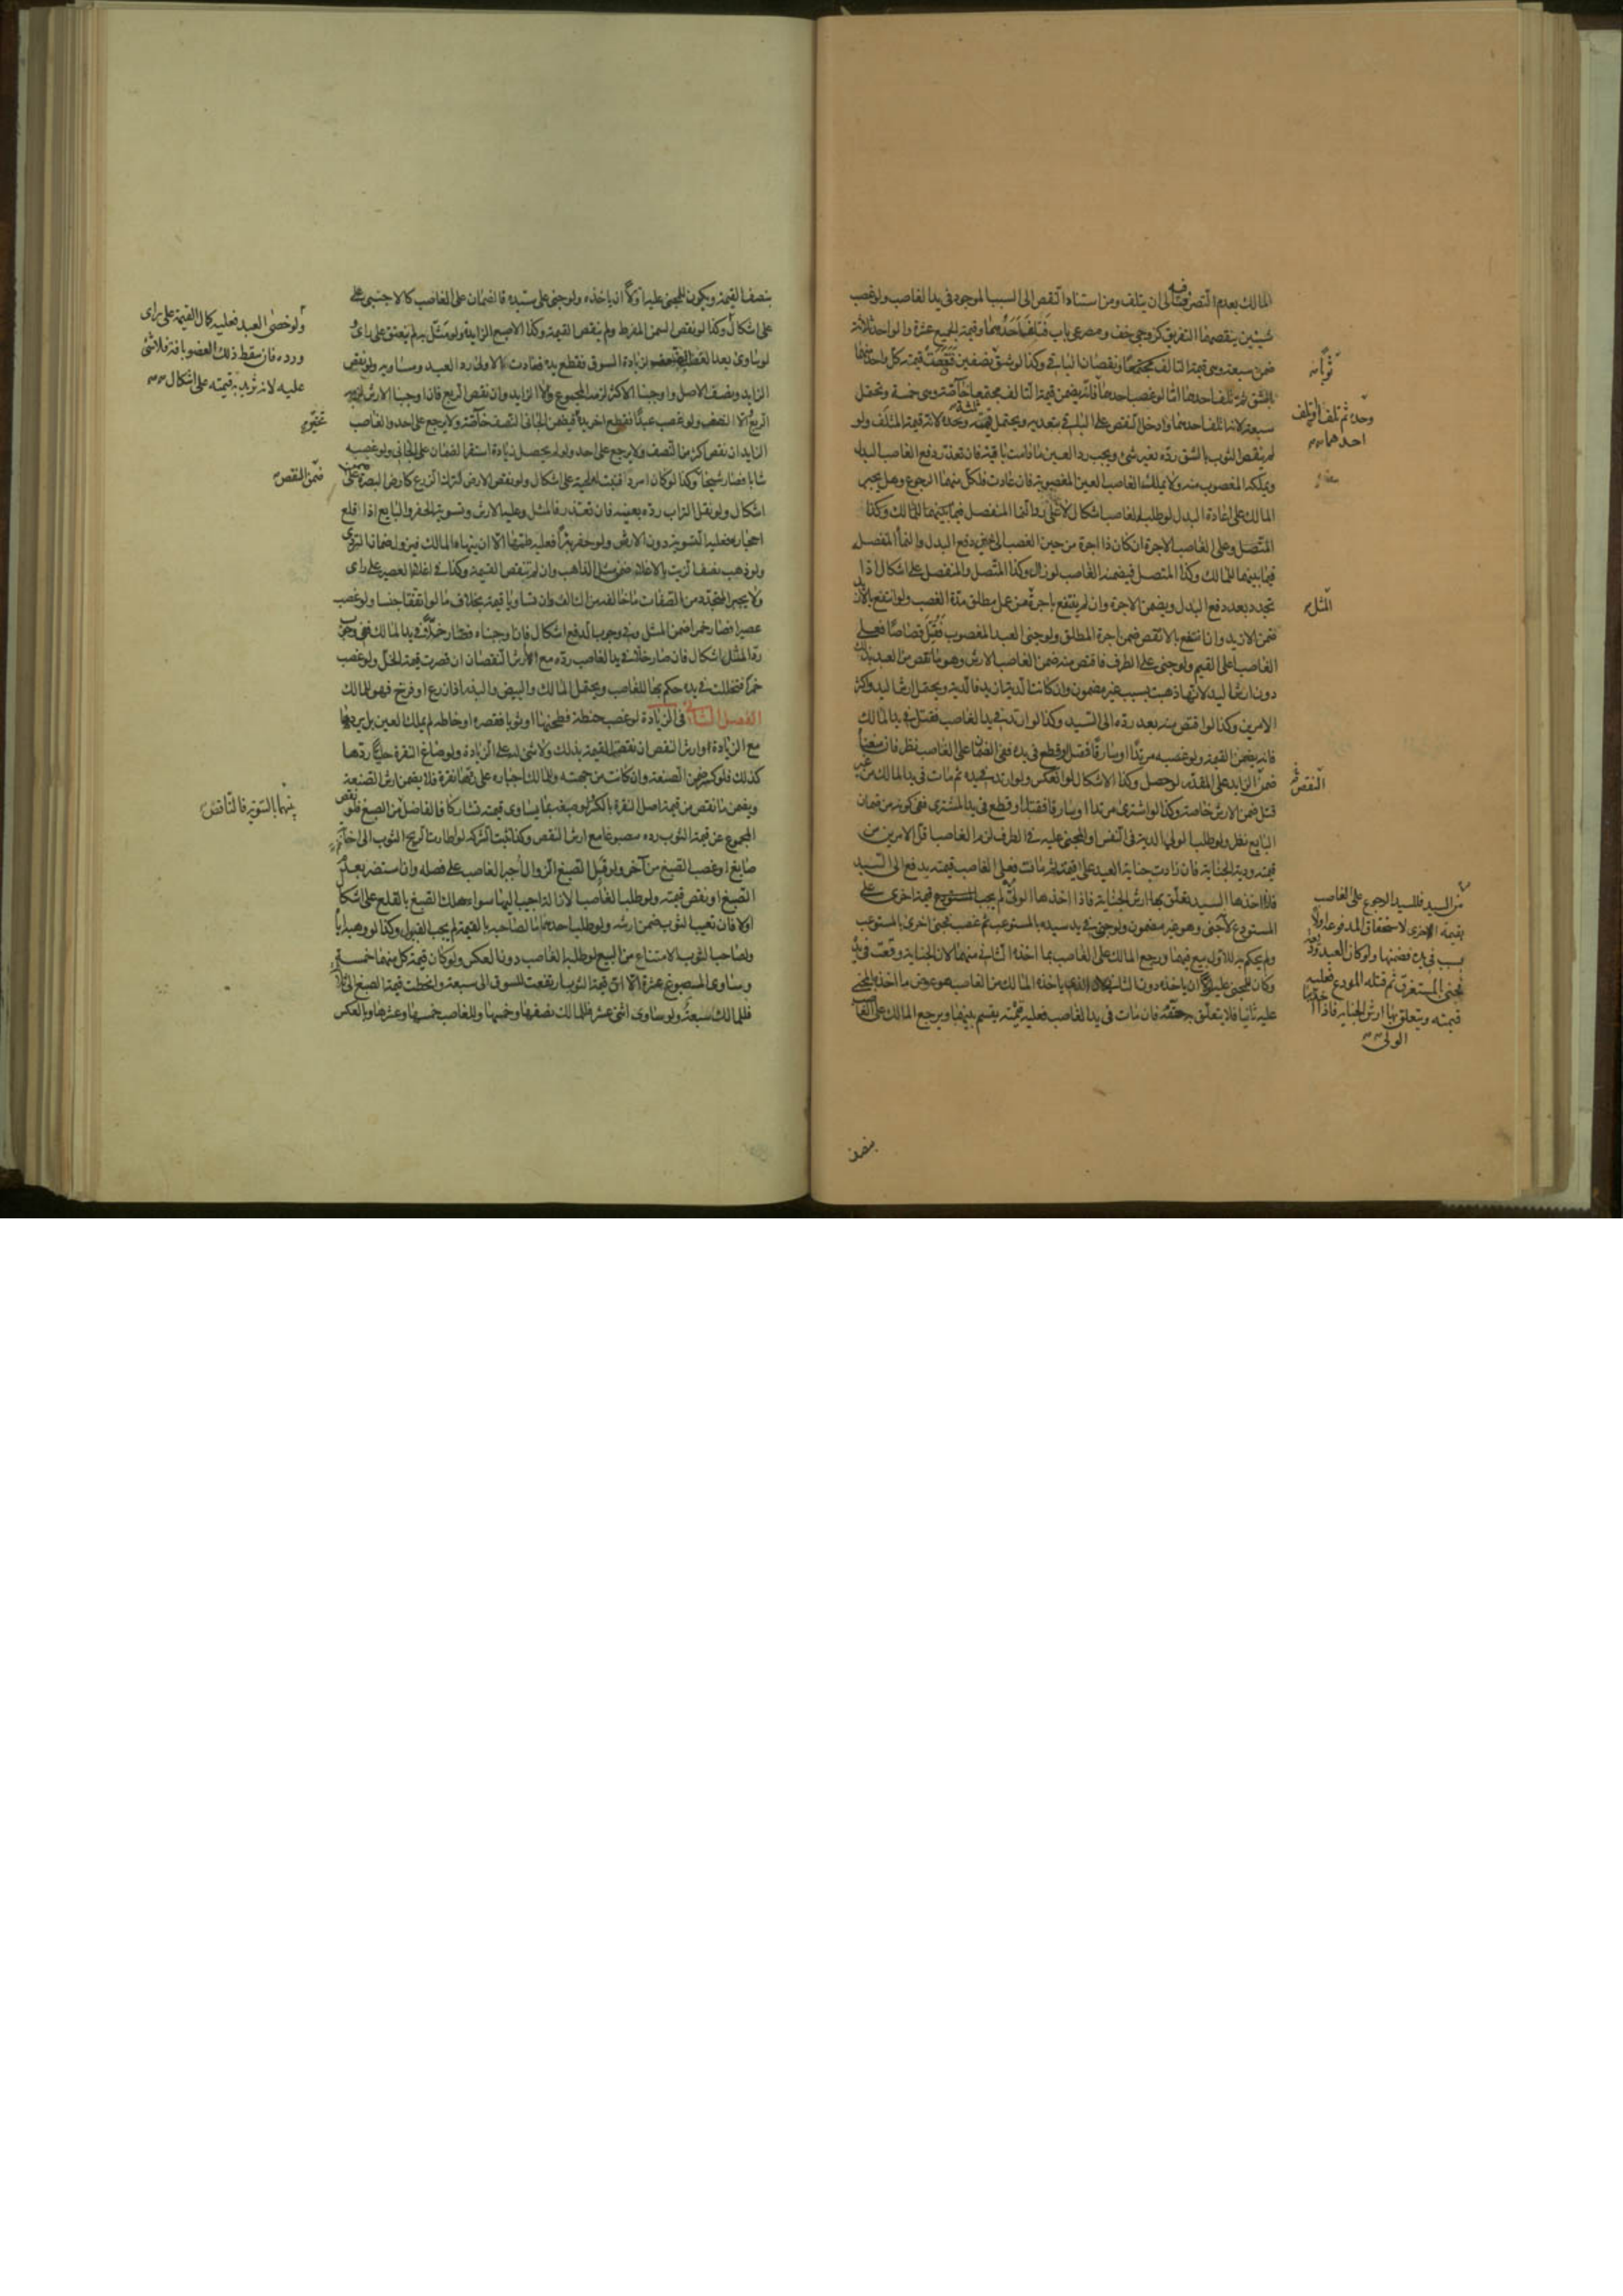 المالك بعدم التصرف فيه الى ان يتلف ومن استناد النقص الى السبب الموجود في يد الغاصب ولو غصب
شيئين ينقصهما التفريق كزوجي خف ومصرعي باب فتلف احدهما وقيمة الجميع عشرة والواحد ثلاثة
ضمن سبعة وهي قيمة التالف مجتمعا ونقصان الباقي وكذا لو شق نصفين فنقصت قيمة كل واحد منهما
بالشق ثم تلف احدهما اما لو غصب احدهما فانه يضمن قيمة التالف مجتمعا خاصة وهي خمسة ويحتمل
سبعة لانه اتلف احدهما وادخل النقص على الباقي بتعديه ويحتمل ثلثة لانه قيمة المتلف ولو
لم ينقص الثوب بالشق رده بغير شئ ويجب رد العين ما دامت باقية فان تعذر دفع الغاصب البدل
ويملكه المغصوب منه ولا يملك الغاصب العين المغصوبة فان عادت فلكل منهما الرجوع وهل يجبر
المالك على اعادة البدل لو طلبه الغاصب اشكال والنماء المنفصل فيما بينهما للمالك وكذا
المتصل وعلى الغاصب الاجرة ان كان ذا اجرة من حين الغصب الى حين دفع البدل والنماء المنفصل
فيما بينهما للمالك وكذا المتصل فيضمنه الغاصب لو زال وكذا المتصل والمنفصل على اشكال اذا
تجدد بعد دفع البدل ويضمن الاجرة وان لم ينتفع باجرة من عمل مطلق مدة الغصب ولو انتفع بالازيد
ضمن الازيد وان انتفع بالانقص ضمن اجرة المطلق ولو جنى العبد المغصوب فقتل قصاصا فعلى
الغاصب اعلى القيم ولو جنى على الطرف فاقتص منه ضمن الغاصب الارش وهو ما نقص من العبد بذلك
دون ارش اليد لانها ذهبت بسبب غير مضمون ولو كانت الدية ان يد فالدية ويحتمل ارش اليد واكثر
الامرين وكذا لو اقتص منه بعد رده الى السيد وكذا لو ارتد في يد الغاصب فقتل في يد المالك
فانه يضمن القيمة ولو غصبه مرتدا او سارقا فقتل او قطع في يده ففي الضمان على الغاصب نظر فان منعنا
ضمن الزايد على المقدر لو حصل وكذا الاشكال لو انعكس ولو ارتد في يده ثم مات في يد المالك من غير
قتل ضمن الارش خاصة وكذا لو اشترى مرتدا او سارقا فقتل او قطع في يد المشتري ففي كونه من ضمان
البايع نظر ولو طلب الولي الدية في النفس او المجني عليه في الطرف لزم الغاصب اقل الامرين من
قيمته ودية الجناية فان زادت جناية العبد على قيمته ثم مات فعلى الغاصب قيمته يدفع الى السيد
فاذا اخذها السيد تعلق بها ارش الجناية فاذا اخذها الولي لم يجب قيمة اخرى على
المستودع لاجنى وهو غير مضمون ولو جنى في يد سيده بالمستوعب ثم غصب فجنى اخرى بالمستوعب
ولم يحكم به للاول بيع فيهما ورجع المالك على الغاصب بما اخذه الثاني منهما لان الجناية وقعت في يده
وكان للمجني عليه اولا ان ياخذه دون الثاني لان الذي ياخذه المالك من الغاصب هو عوض ما اخذه المجني
عليه ثانيا فلا يتعلق به حقه فان مات في يد الغاصب فعليه قيمته يقسم بينهما ويرجع المالك على الغاصب
ثوبا
وحده ثم تلف او تلف
احدهما
المثل
النقص
من السيد فللسيد الرجوع على الغاصب
بقيمة الاخرى لاستحقاق المدفوعة اولا
بسبب في يده فضمنها ولو كان العبد وديعة
فجنى المستغرق ثم قتله المودع فعليه
قيمته ويتعلق بها ارش الجناية فاذا اخذها
الولي
بنصف
بنصف القيمة ويكون للمجني عليه اولا ان ياخذه ولو جنى على سيده فالضمان على الغاصب كالاجنبي على
على اشكال وكذا لو نقص السمن المفرط ولم ينقص القيمة وكذا الاصبع الزايدة ولو مثل به لم ينعتق على راي
لو ساوى بعد الغصب لزيادة السوق فقطع يده فعادت الى الاول رد العبد وما ساوى ولو نقص
الزايد ونصف الاصل واوجبنا الاكثر لزمه المجموع والا الزايد وان نقص الربع فان اوجبنا الارش لزمه
الربع والا النصف ولو غصب عبدا فقطع اخر يده فيضمن الجاني النصف خاصة ولا يرجع على احد والغاصب
الزايد ان نقص اكثر من النصف ولا يرجع على احد ولو لم يحصل زيادة استقر الضمان على الجاني ولو غصبه
شابا فصار شيخا وكذا لو كان امرد فنبتت لحيته على اشكال ولو نقص الارض لترك الزرع كارض البصرة ضمن على
اشكال ولو نقل التراب رده بعينه فان تعذر فالمثل وعليه الارش وتسوية الحفر والبايع اذا قلع
احجاره فعليه التسوية دون الارش ولو حفر بئرا فعليه طمها الا ان ينهاه المالك فيزول ضمان التردي
ولو ذهب نصف الزيت بالاغلاء ضمن مثل الذاهب وان لم تنقص القيمة وكذا في اغلاء العصير على راي
ولا يجبر المتجدد من الصفات ما خالفه من التالف وان تساويا قيمة بخلاف ما لو اتفقا جنسا ولو غصب
عصيرا فصار خمرا ضمن المثل وفي وجوب الدفع اشكال فان اوجبناه فصار خلا في يد المالك ففي وجوب
رد المثل اشكال فان صار خلا في يد الغاصب رده مع الارش النقصان ان قصرت قيمة الخل ولو غصب
خمرا فتخللت في يده حكم بها للغاصب ويحتمل المالك والبيض والبذر اذا زرع او فرخ فهو للمالك
الفصل الثاني في الزيادة لو غصب حنطة فطحنها او ثوبا فقصره او خاطه لم يملك العين بل يردها
مع الزيادة وارش النقص ان نقصت القيمة بذلك ولا شئ له على الزيادة ولو صاغ النقرة حليا ردها
كذلك فلو كسر ضمن الصنعة وان كانت من جهته وللمالك اجباره على ردها نقرة فلا يضمن ارش الصنعة
ويضمن ما نقص من قيمة اصل النقرة بالكسر ولو صبغه بما يساوى قيمته تشاركا فالفاضل من الصبغ فلو نقص
المجموع عن قيمة الثوب رده مصبوغا مع ارش النقص وكذا ثبت الشركة لو اطارت الريح الثوب الى اجانة
صابغ او غصب الصبغ من اخر ولو قبل الصبغ الزوال اجبر الغاصب على فصله وان استضر بعدم
الصبغ او نقص قيمته ولو طلب الغاصب الازالة اجيب اليها سواء هلك الصبغ بالقلع على اشكال
اولا فان تعيب الثوب ضمن ارشه ولو طلب احدهما ما لصاحبه بالقيمة لم يجب القبول وكذا لو وهب اياه
ولصاحب الثوب الامتناع من البيع لو طلبه الغاصب دون العكس ولو كان قيمة كل منهما خمسة
وساوى المصبوغ عشرة الا ان قيمة الثوب ارتفعت للسوق الى سبعة وانحطت قيمة الصبغ الى ثلاثة
فللمالك سبعة ولو ساوى اثنى عشر فللمالك نصفها وخمسها وللغاصب خمسها وعشرها وبالعكس
ولو خصى العبد فعليه كمال القيمة على راى
ورده فان سقط ذلك العضو بافة فلا شئ
عليه لانه يزيد به قيمته على اشكال
تخير
ضمن النقص
بينهما بالسوية فالناقص